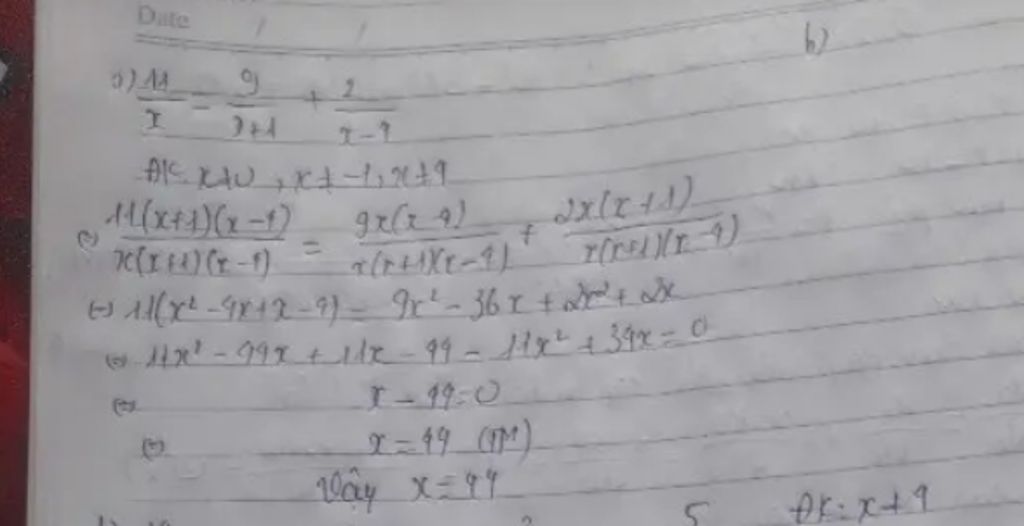 Date / /
b)
a) 11/x = 9/(x+1) + 2/(x-4)
ĐK x≠0, x≠-1, x≠4
(=) 11(x+1)(x-4)/x(x+1)(x-4) = 9x(x-4)/x(x+1)(x-4) + 2x(x+1)/x(x+1)(x-4)
(=) 11(x² - 4x + x - 4) = 9x² - 36x + 2x² + 2x
(=) 11x² - 44x + 11x - 44 - 11x² + 34x = 0
(=) x - 44 = 0
(=) x = 44 (TM)
Vậy x = 44
5 ĐK: x ≠ 4